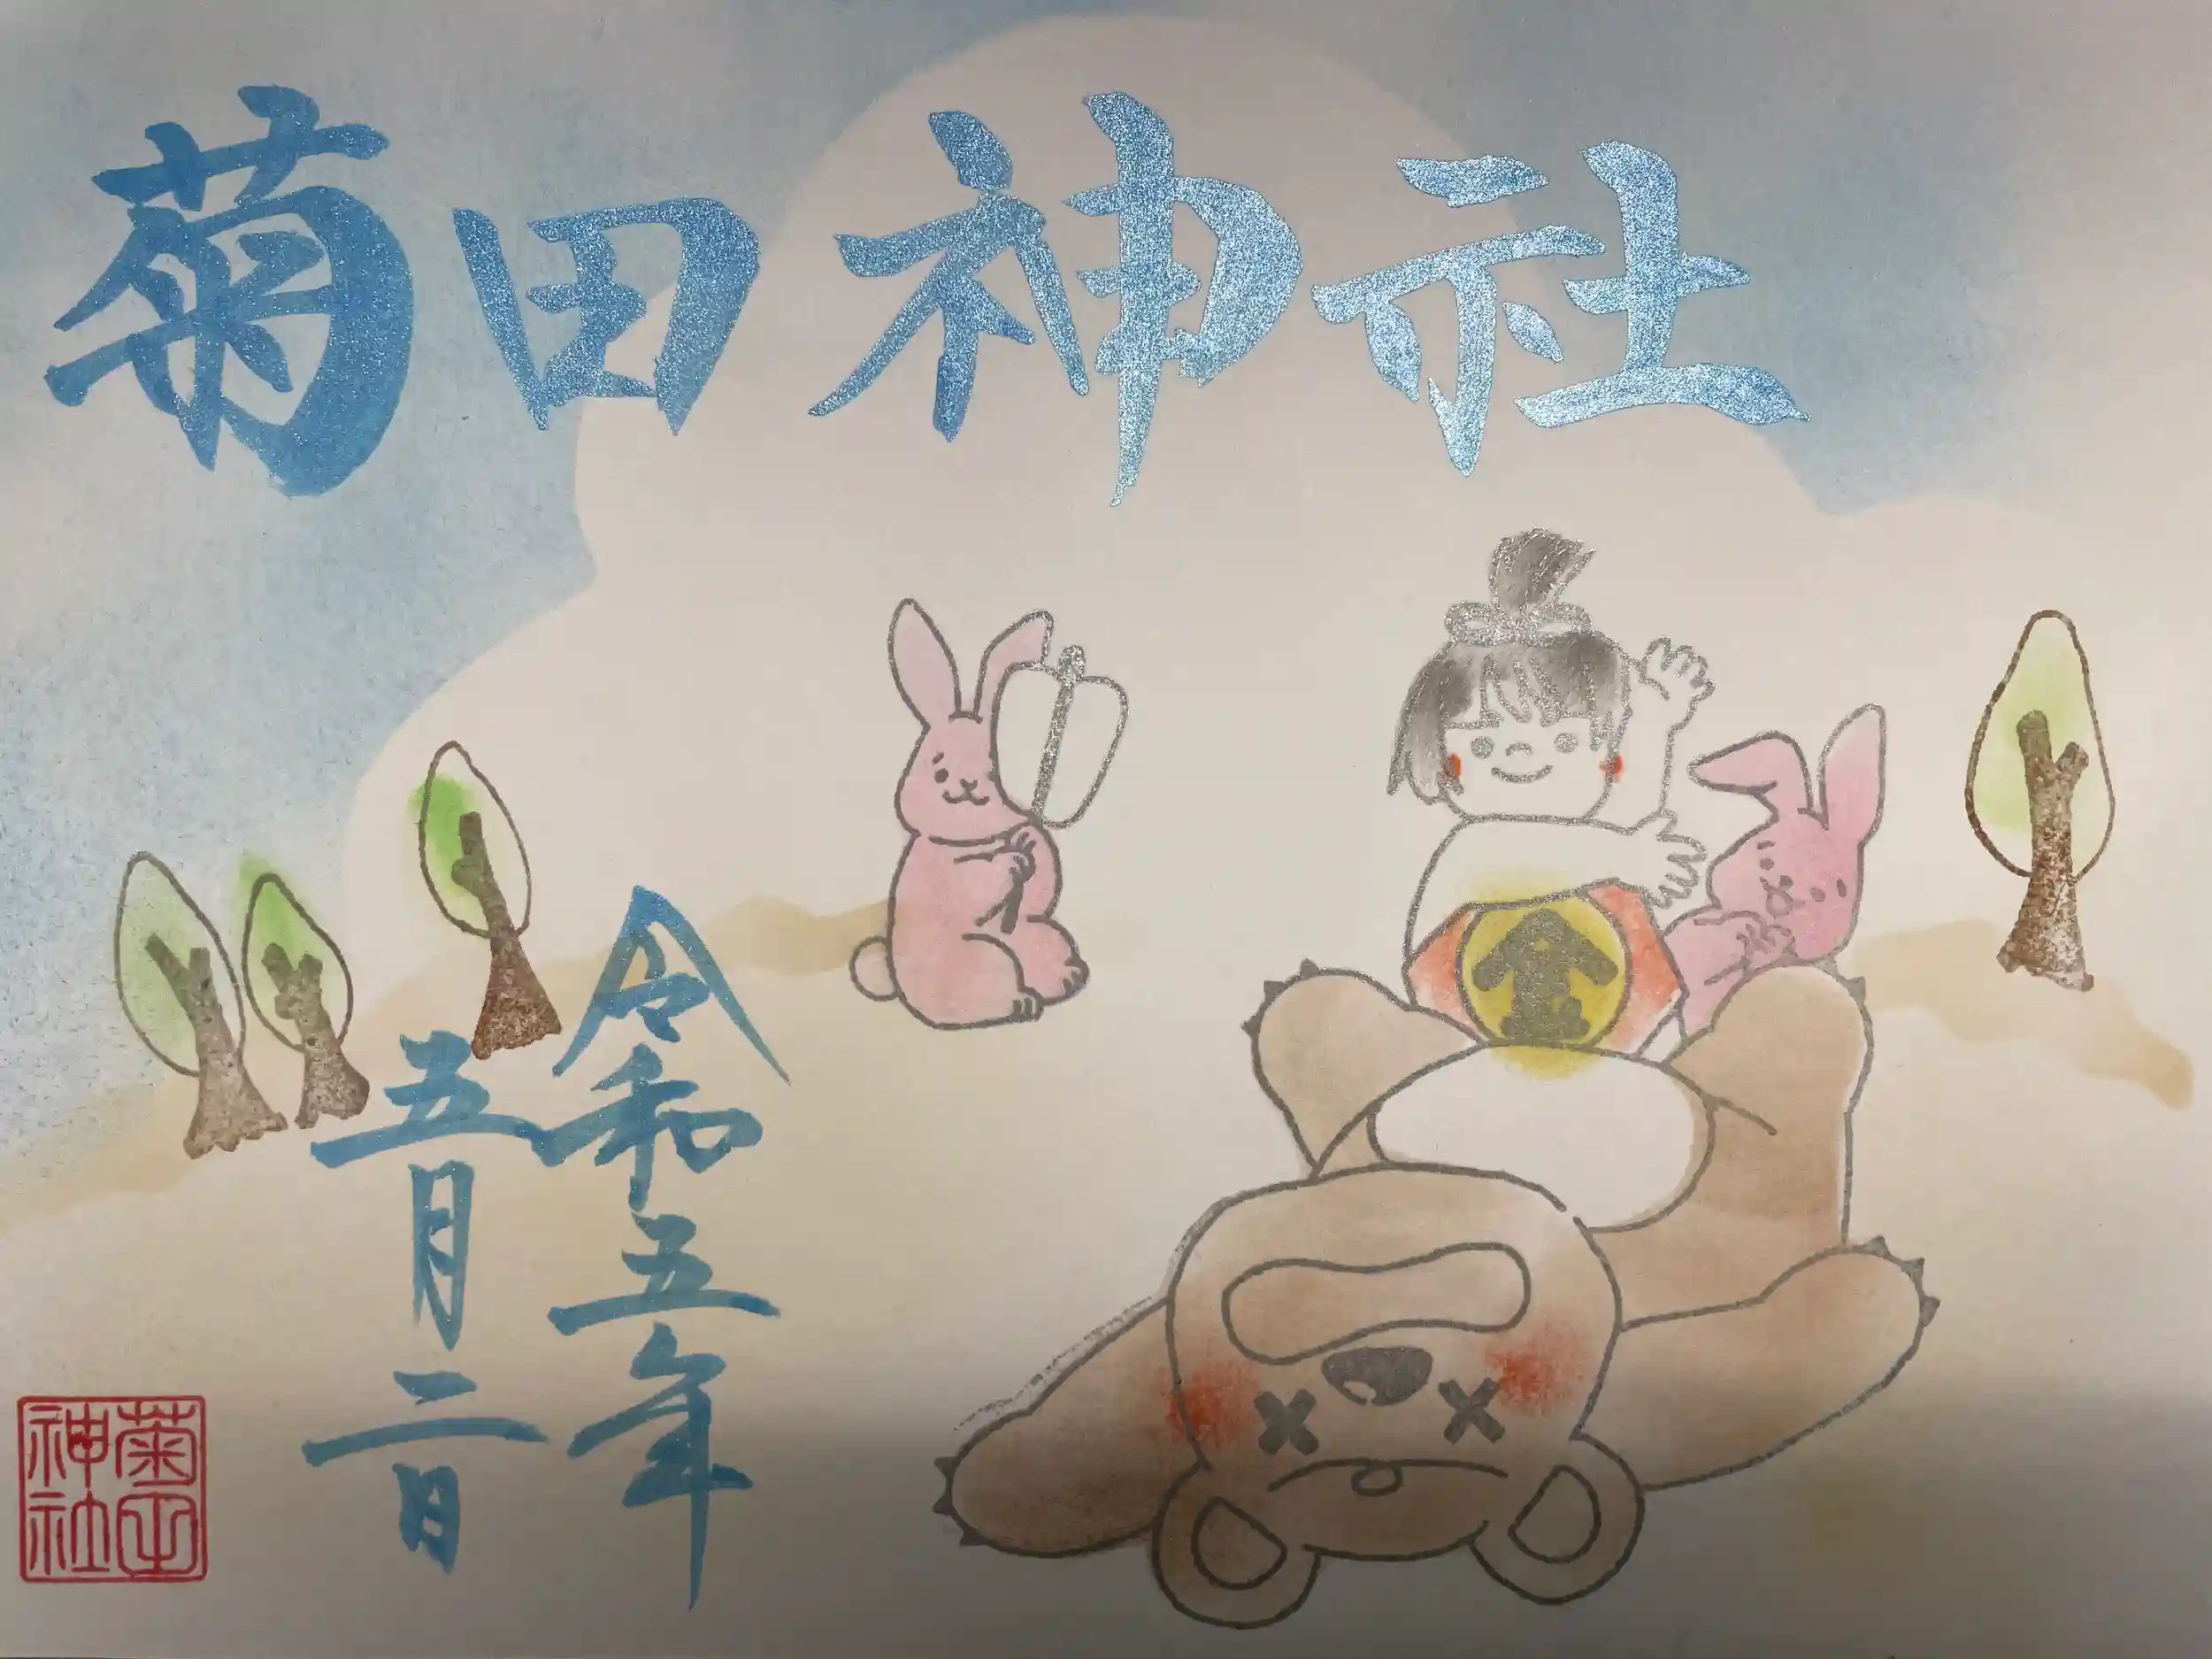 菊田神社
金
令和五年
五月二日
菊田
神社